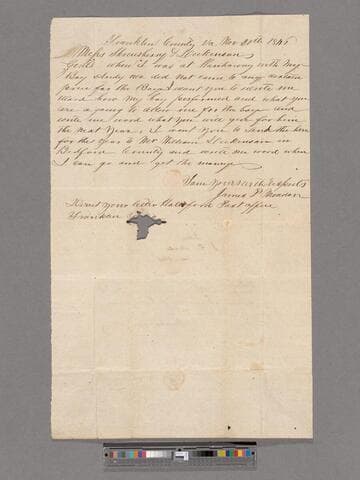 Franklin County Va Nov 20th 1845
Messrs Shrewsbury & Dickenson
Gents when I was at Kanhaway with my
Boy Andy we did not come to any certain
price for the Boy I want you to write me
word how My boy performed and what you
are agoing to allow me for the boy and
write me word what you will give for him
the next Year, I want you to send the hire
for this Year to Mr William Dickenson in
Bedford County and write me word when
I can go and get the money
I am your with respects
James P.
Direct your letter Post office
Franklin